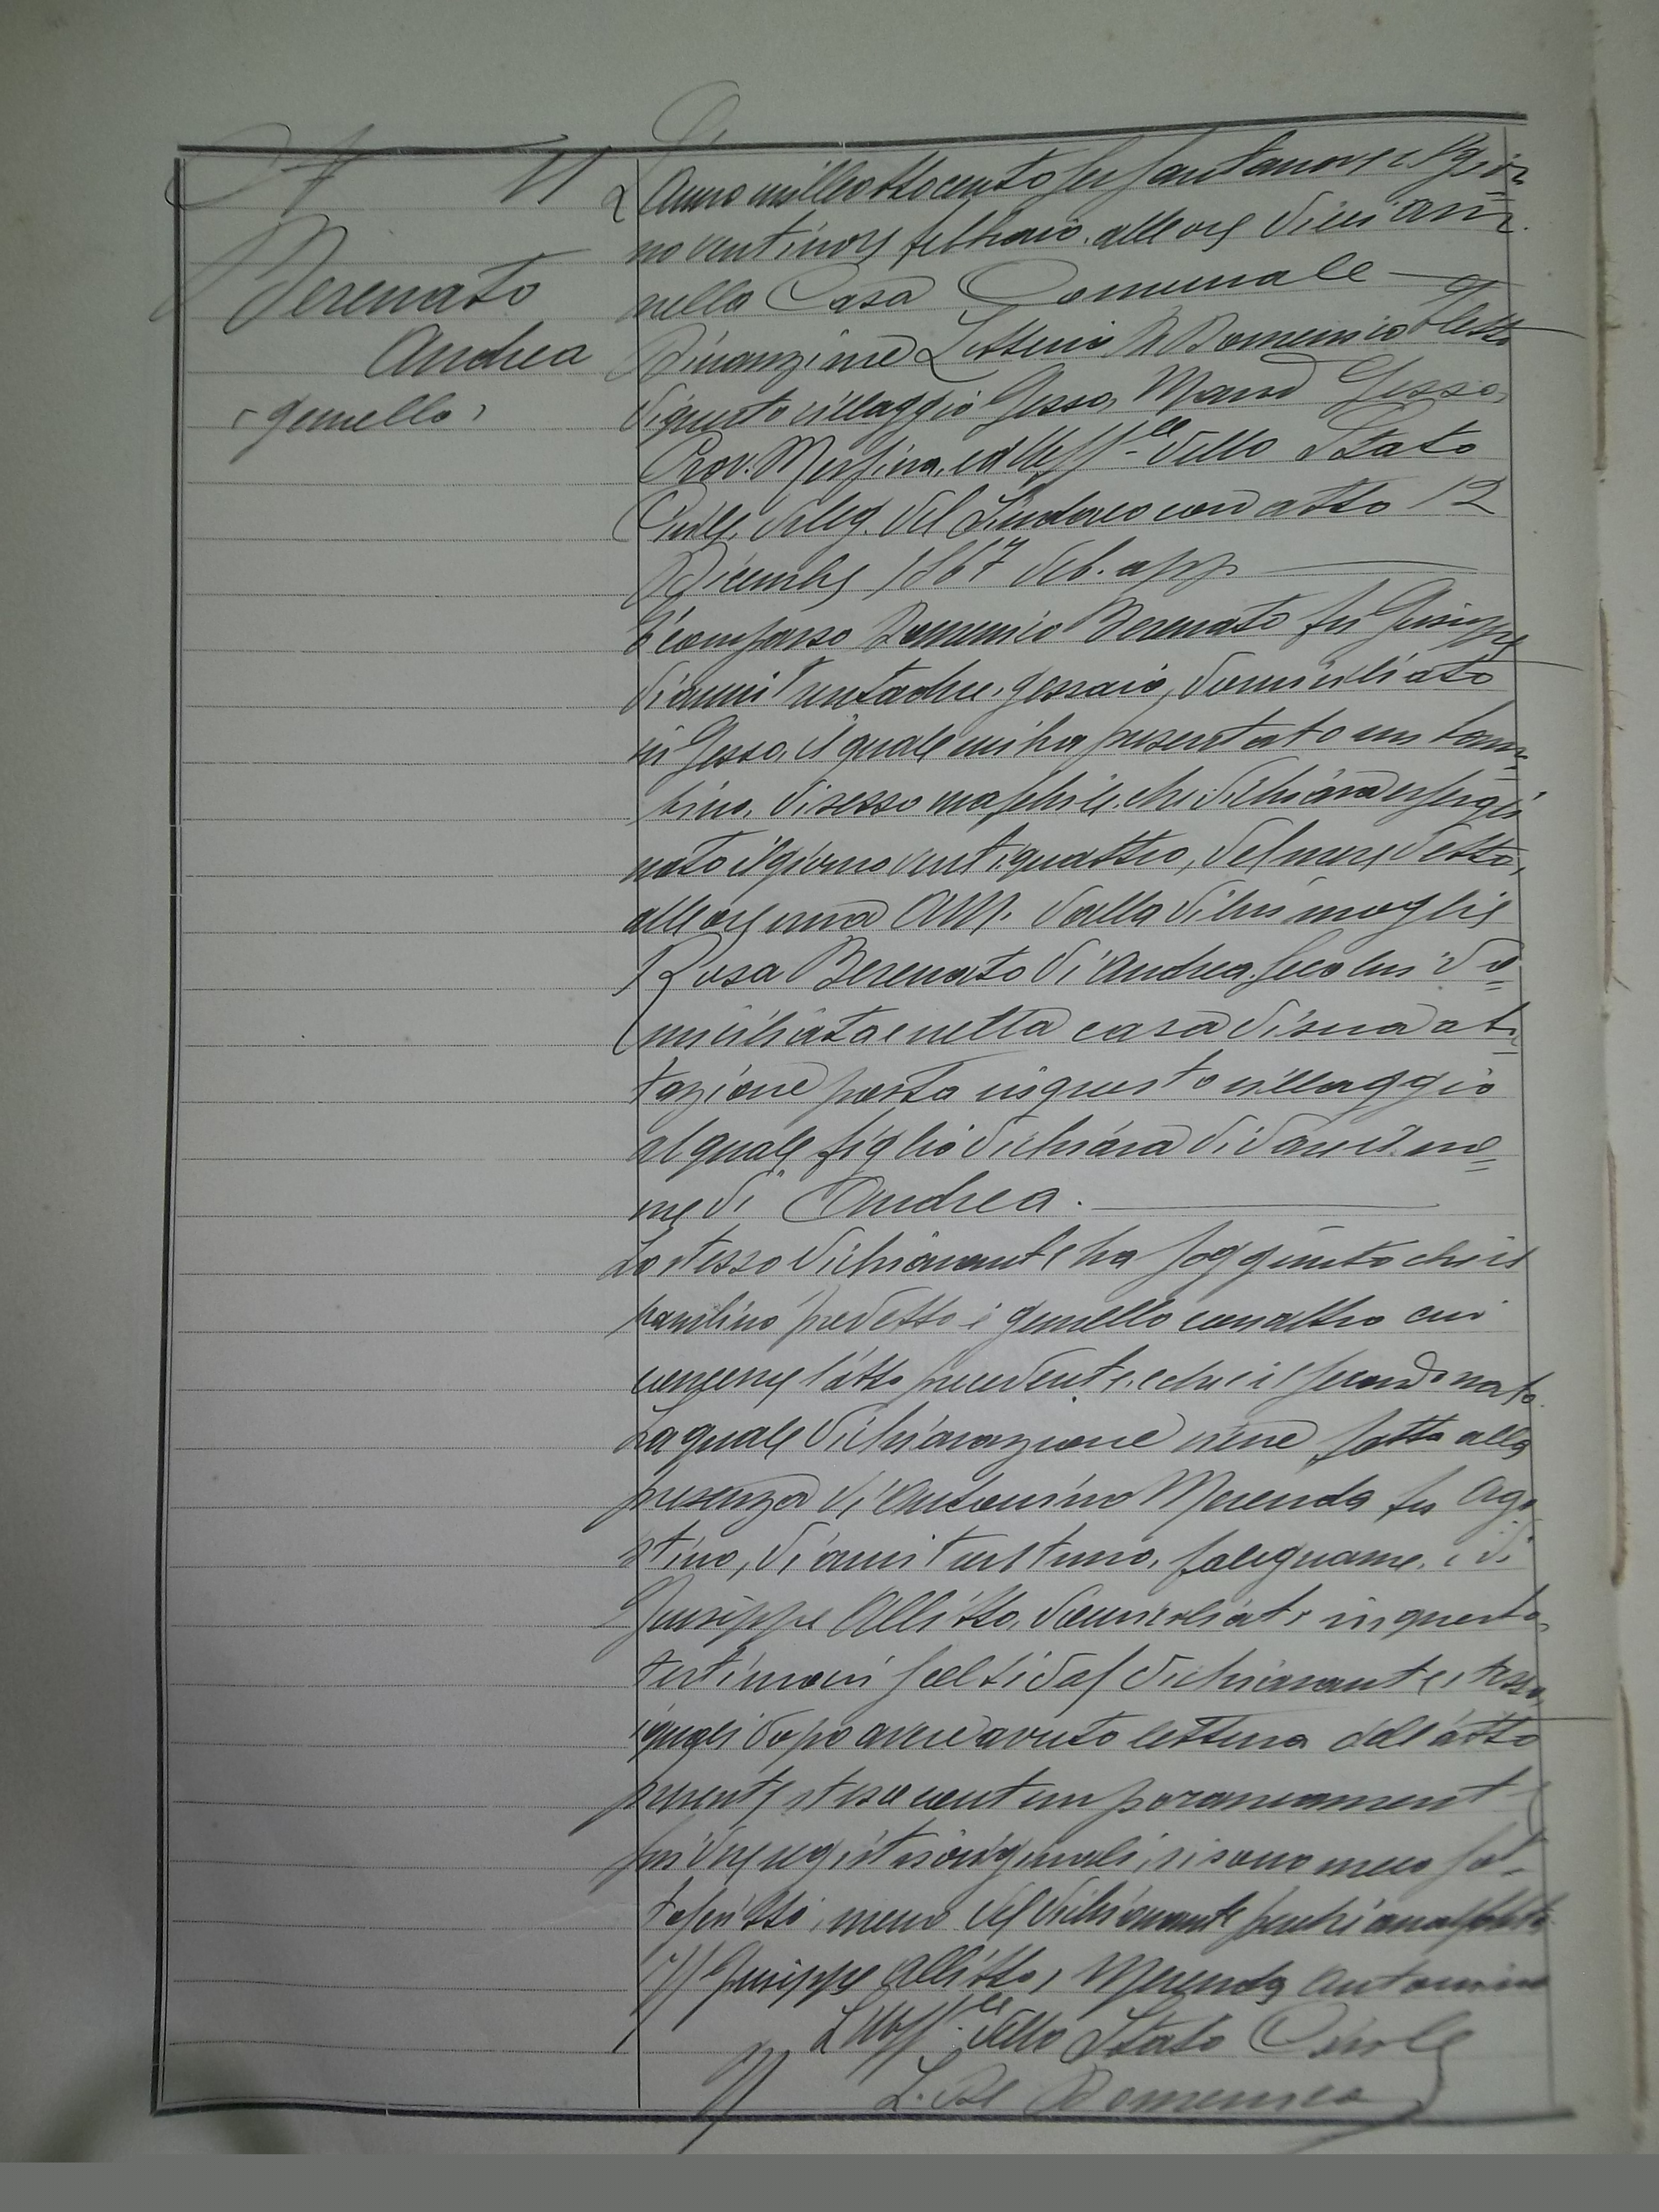 N 11
Berenato
Andrea
"gemello"
L'Anno milleottocento sessantanove il gior=
no ventinove febbraio, alle ore dieci am.
nella Casa Comunale
Dinanzi me Letterio Di Domenico
di questo villaggio Gesso, Mand Gesso,
Prov. Messina, ed Uff.le dello Stato
Civile, deleg. del Sindaco con atto 12
Dicembre 1867 deb. app.
È comparso Domenico Berenato fu Giuseppe
di anni trentadue, gessaio, domiciliato
in Gesso, il quale mi ha presentato un bam=
bino, di sesso maschile, che dichiara essergli
nato il giorno ventiquattro, del mese detto,
alle ore una AM. dalla di lui moglie
Rosa Berenato di Andrea seco lui do=
miciliata e nella casa di sua abi=
tazione posta in questo villaggio
al quale figlio dichiara di dare il no=
me di Andrea.
Lo stesso dichiarante ha soggiunto che il
bambino predetto è gemello con altro cui
concerne l'atto precedente, e che è il secondo nato.
La quale dichiarazione viene fatta alla
presenza di Antonino Merenda fu Ago
stino, di anni falegname, e di
Giuseppe Allitto, domiciliati in questo,
testimoni scelti dal dichiarante stesso,
i quali dopo avere avuto lettura dell'atto
presente steso contemporaneamente
sui due registri originali, si sono meco sot=
toscritti, meno del dichiarante perchè analfabeta
Giuseppe Allitto, Merenda Antonino
L'Uff.le dello Stato Civile
L. Di Domenico